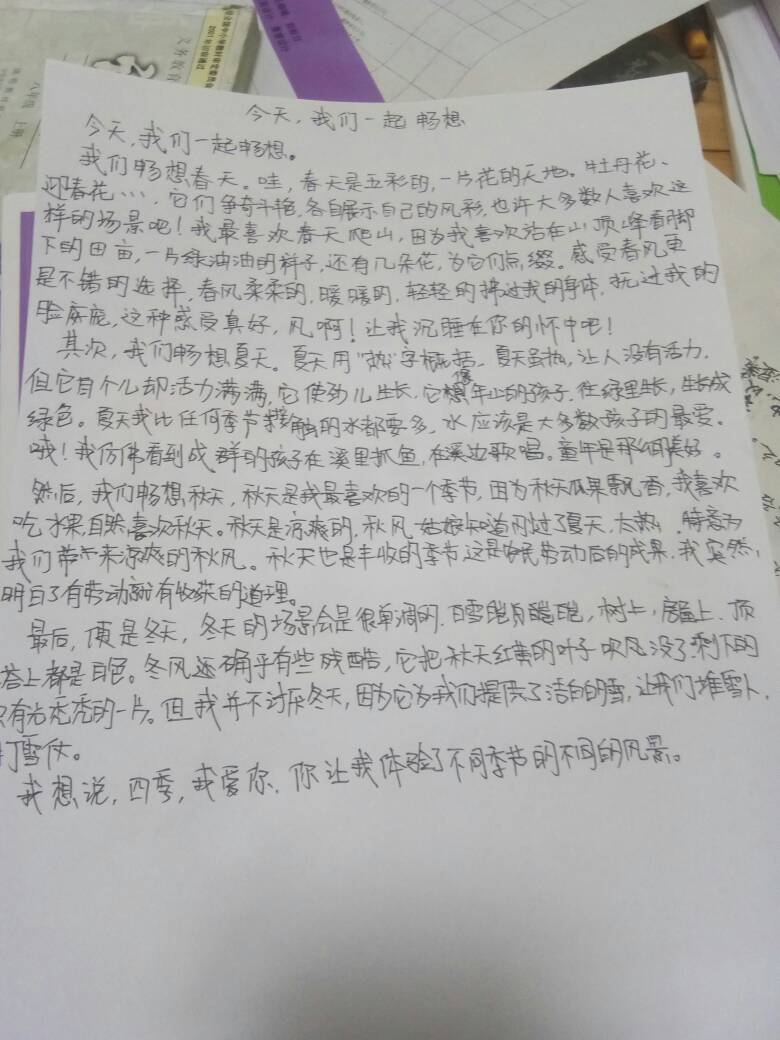 义务教育
八年级 上册
今天,我们一起畅想
今天,我们一起畅想。
我们畅想春天。哇,春天是五彩的,一片花的天地。牡丹花、
迎春花…,它们争奇斗艳,各自展示自己的风彩,也许大多数人喜欢这
样的场景吧!我最喜欢春天爬山,因为我喜欢站在山顶峰看脚
下的田亩,一片绿油油的样子,还有几朵花,为它们点缀。感受春风更
是不错的选择,春风柔柔的,暖暖的,轻轻的拂过我的身体,抚过我的
脸庞,这种感受真好,风啊!让我沉睡在你的怀中吧!
其次,我们畅想夏天。夏天用"热"字概括,夏天虽热,让人没有活力,
但它自个儿却活力满满,它使幼儿生长,它像年幼的孩子,在绿里生长,生长成
绿色。夏天我比任何季节接触的水都要多,水应该是大多数孩子的最爱。
哦!我仿佛看到成群的孩子在溪里抓鱼,在溪边歌唱。童年是那么美好。
然后,我们畅想秋天,秋天是我最喜欢的一个季节,因为秋天瓜果飘香,我喜欢
吃水果,自然喜欢秋天。秋天是凉爽的,秋风姑娘知道刚过了夏天,太热,特意为
我们带来凉爽的秋风。秋天也是丰收的季节,这是农民劳动后的成果,我突然,
明白了有劳动就有收获的道理。
最后,便是冬天,冬天的场景会是很单调的,白雪皑皑,树上,屋上、顶
塔上都是白色。冬风还确乎有些残酷,它把秋天红黄的叶子吹没了,剩下的
只有光秃秃的一片。但我并不讨厌冬天,因为它为我们提供了洁白的雪,让我们堆雪人,
打雪仗。
我想说,四季,我爱你,你让我体验了不同季节的不同的风景。